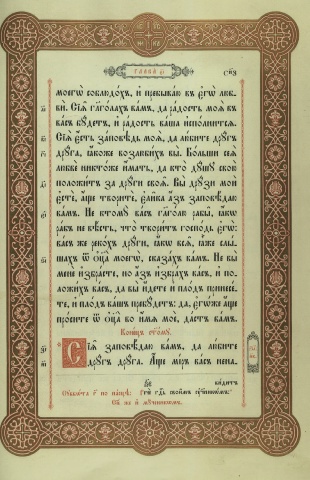 ГЛАВА
моегѡ̀ соблюдо́хъ, и҆ пребыва́ю въ є҆гѡ̀ люб-
вѝ. Сїѧ̑ гл҃го́лахъ ва́мъ, да ра́дость моѧ̀ въ
ва́съ бу́детъ, и҆ ра́дость ва́ша и҆спо́лнитсѧ.
Сїѧ̀ є҆́сть за́повѣдь моѧ̀, да лю́бите дру́гъ
дру́га, ꙗ҆́коже возлюби́хъ вы̀. Бо́льши сеѧ̀
любвѐ никто́же и҆́мать, да кто̀ ду́шу свою̀
положи́тъ за дру́ги своѧ̑. Вы̀ дру́зи моѝ
є҆стѐ, а҆́ще творитѐ, є҆ли̑ка а҆́зъ заповѣ́даю
ва́мъ. Не ктомꙋ̀ ва́съ гл҃го́лю рабы̑, ꙗ҆́кѡ
ра́бъ не вѣ́сть, что̀ твори́тъ госпо́дь є҆гѡ̀:
ва́съ же реко́хъ дрꙋ́ги, ꙗ҆́кѡ всѧ̑, ꙗ҆̀же слы́-
шахъ ѿ ѻ҆ц҃а̀ моегѡ̀, сказа́хъ ва́мъ. Не вы̀
менѐ и҆збра́сте, но а҆́зъ и҆збра́хъ ва́съ, и҆ по-
ложи́хъ ва́съ, да вы̀ и҆́дете и҆ пло́дъ принесе́-
те, и҆ пло́дъ ва́шъ пребꙋ́детъ: да, є҆гѡ́же а҆́ще
про́сите ѿ ѻ҆ц҃а̀ во и҆́мѧ моѐ, да́стъ ва́мъ.
Коне́цъ
Сїѧ̑ заповѣ́даю ва́мъ, да лю́бите
дрꙋ́гъ дрꙋ́га. А҆́ще мі́ръ ва́съ нена-
ви́дитъ
свои̑мъ ᲂу҆чн҃кѡ́мъ: